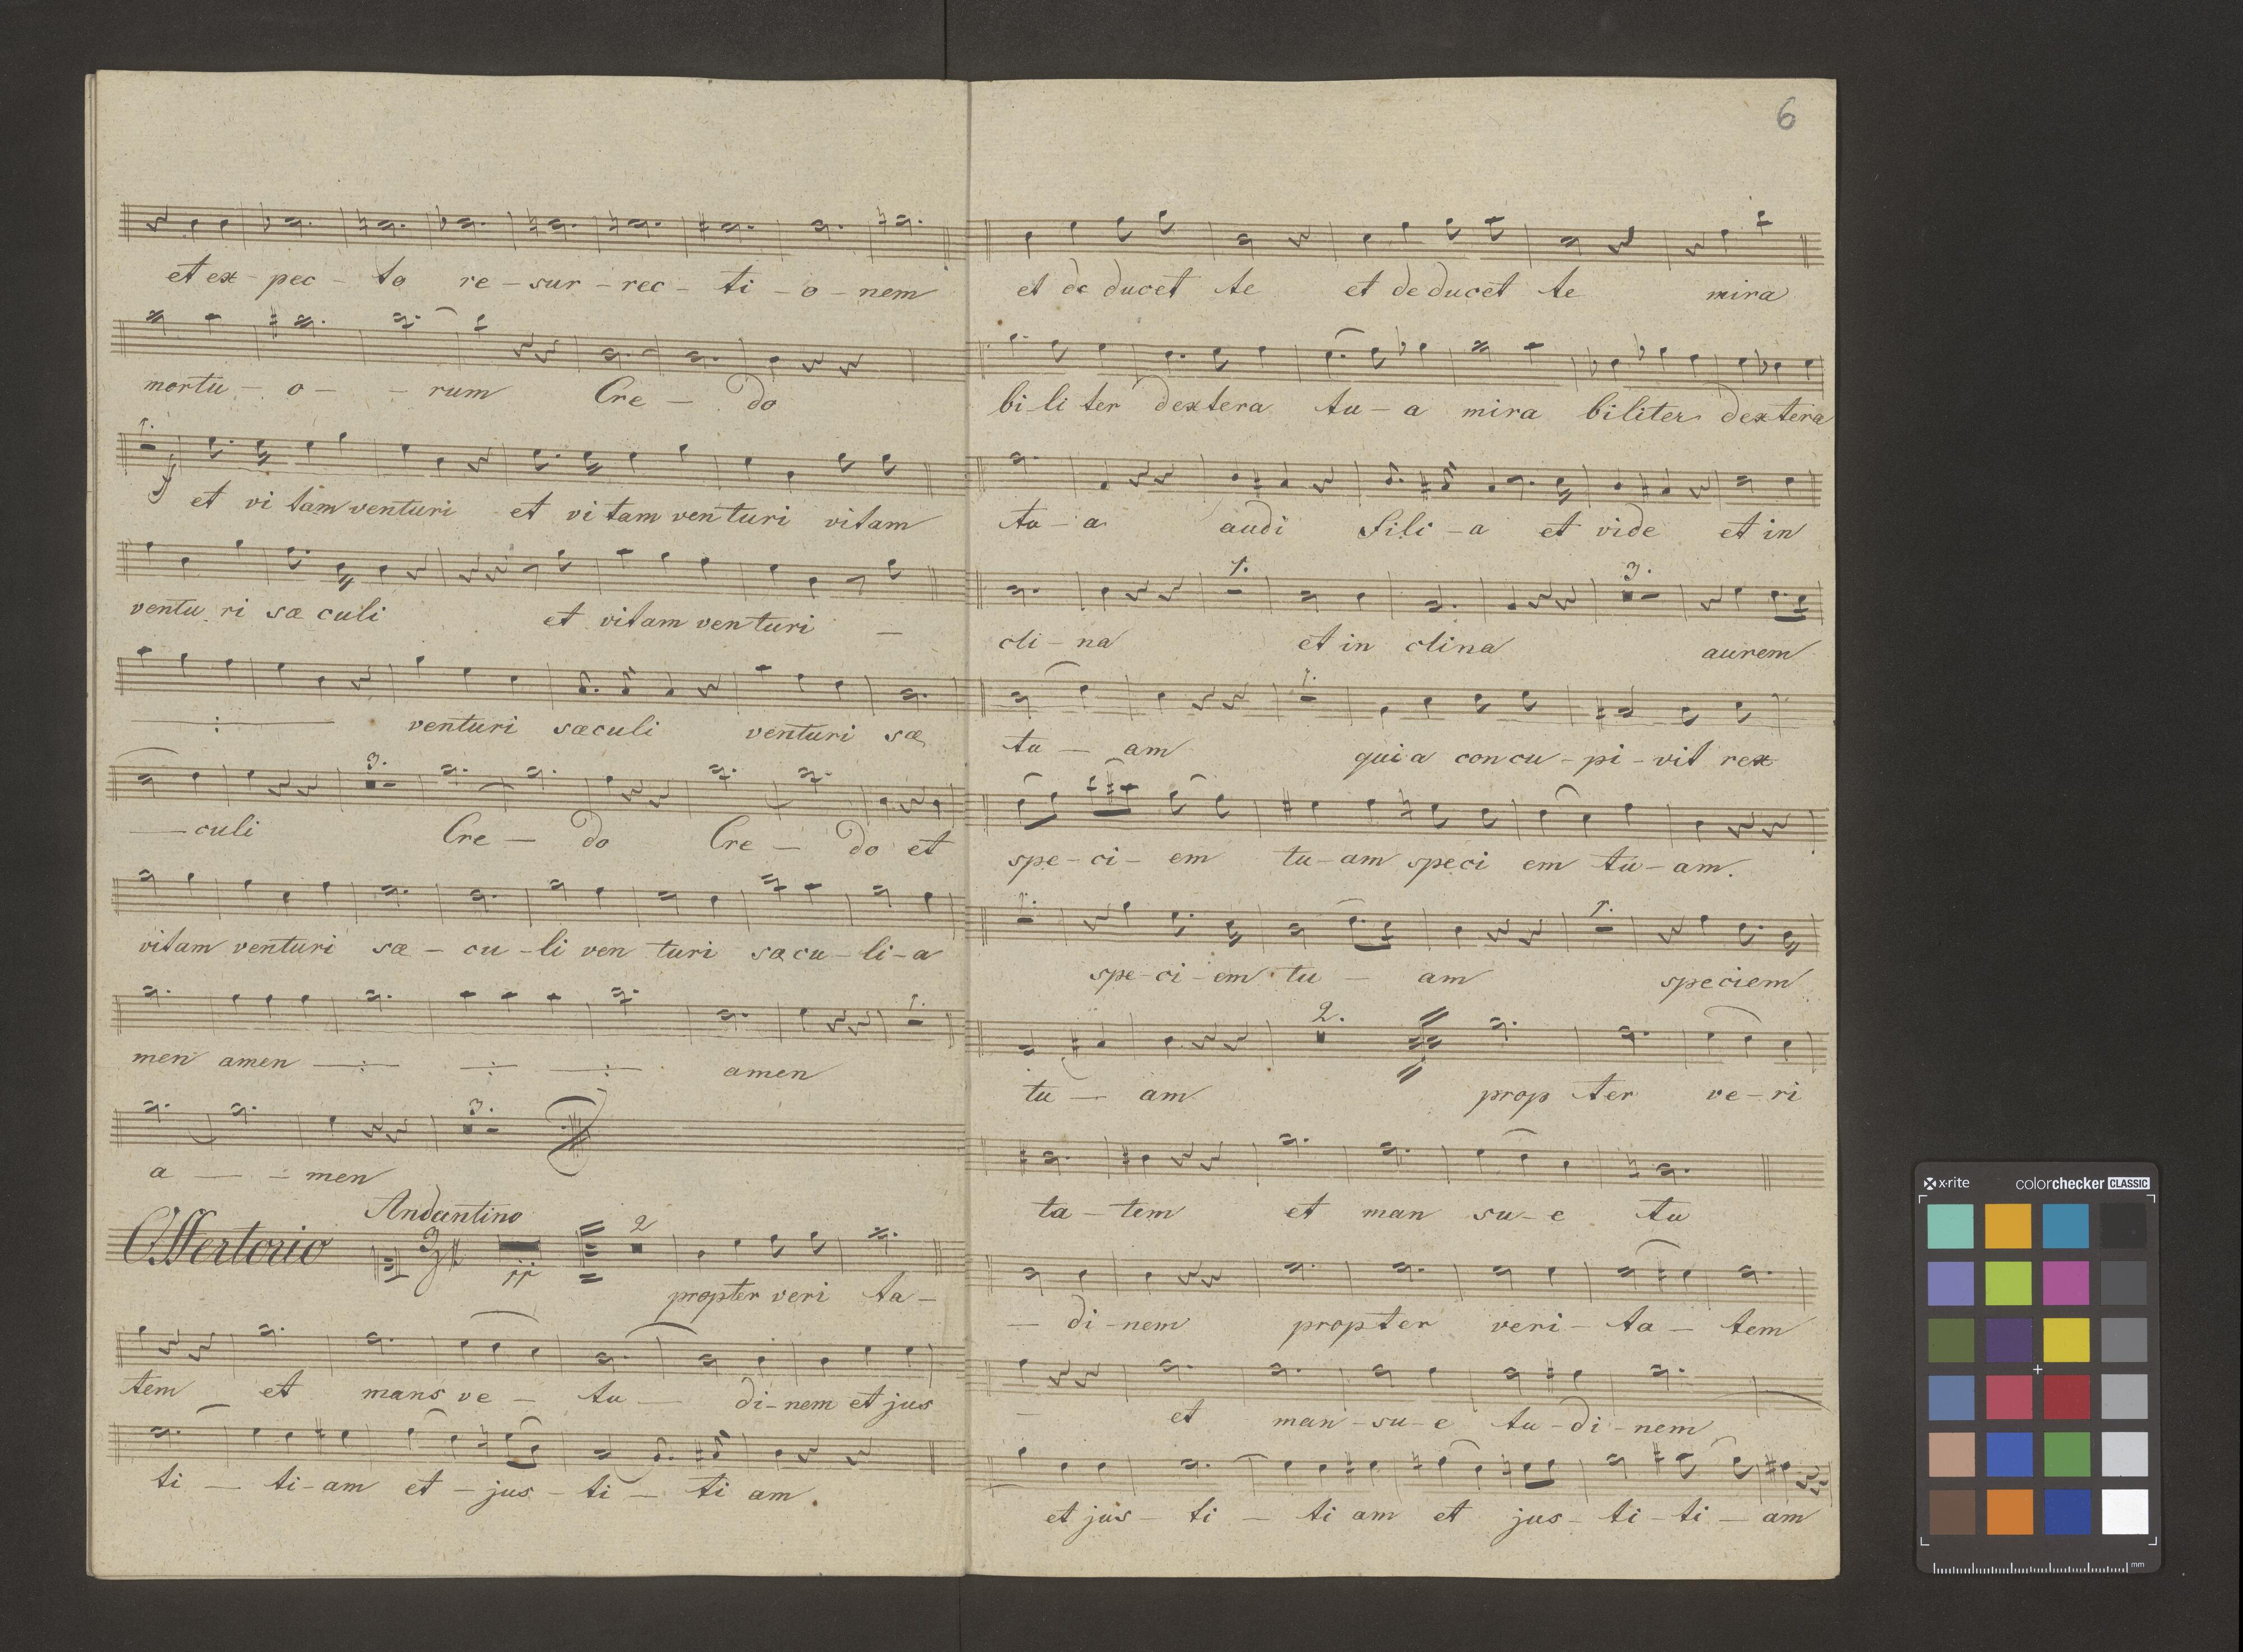 et ex - pec - to re - sur - rec - ti - o - nem
mortu - o - - rum Cre - do
1.
et vi tam venturi et vi tam venturi vitam
ventu ri sæ culi et vitam venturi —
—:— venturi sæculi venturi sæ
3.
— culi Cre — do Cre — do et
vitam venturi sæ - cu - li ven turi sæcu - li - a
1.
men amen —:— —:— —:— amen
3.
a — - men
Offertorio Andantino 3 2
propter veri ta -
tem et mans ve - tu — di - nem et jus
ti — ti - am et - jus - ti — ti am.
6
et de ducet te et de ducet te mira
bi - li ter dextera tu - a mira biliter dextera
tu - a audi fili - a et vide et in
1. 3.
cli - na et in clina aurem
1.
tu — am quia concu - pi - vit rex
spe - ci - em tu - am speci em tu - am.
1. 1.
spe - ci - em tu — am speciem
2.
tu — am prop ter ve - ri
ta - tem et man su - e tu
— di - nem propter veri - ta - tem
— et man - su - e tu - di - nem
et jus - ti — ti am et jus - ti - ti — am
x-rite colorchecker CLASSIC
mm